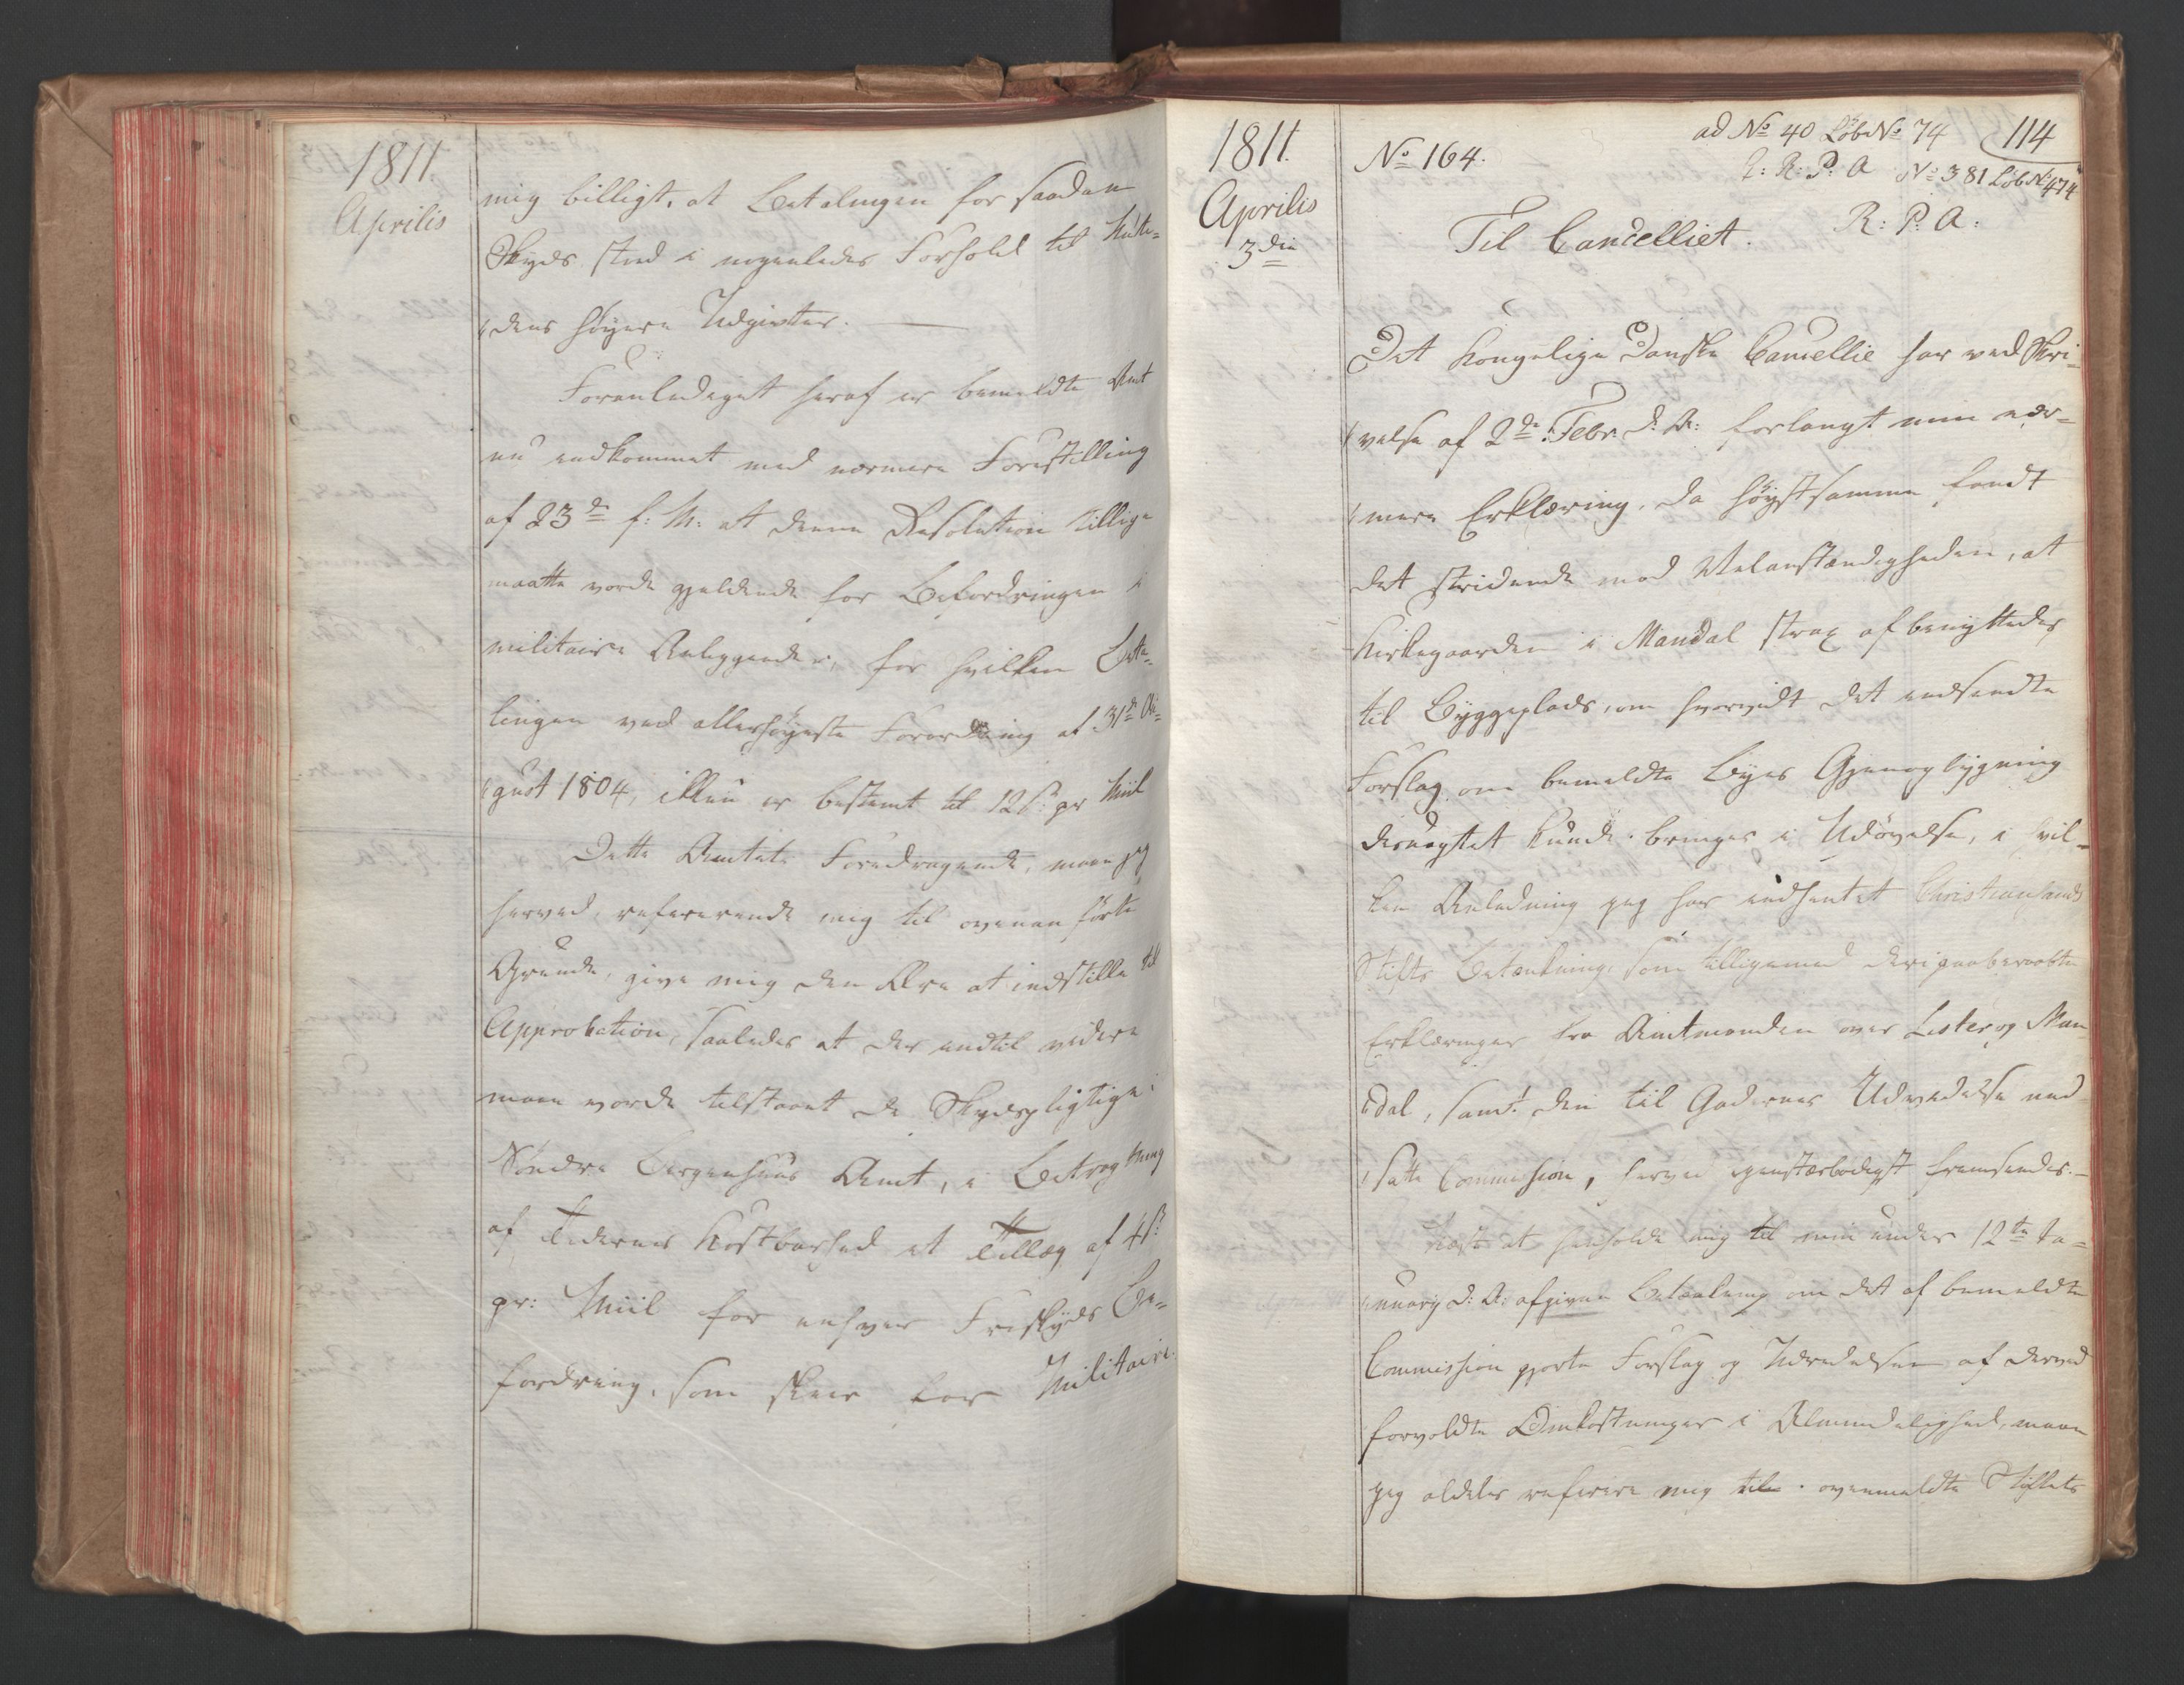 1811.
Aprilis
mig billigt, at Betalingen for saadan
Skyds stod i nogenledes Forhold til
dens høyere Udgivter.
Foranlediget heraf er bemeldte Amt
nu indkommet med nærmere Forestilling
af 23de f: M: at denne Resolution tillige
maatte vorde gjeldende for Befordringen i
militaire Anliggender, for hvilken Beta=
lingen ved allerhøyeste Forordning af 31te Au=
gust 1804, ikkun er bestemt til 12 s. pr Miil
Dette Amtets Foredragende, maae jeg
herved, refererende mig til ovenanførte
Grunde, give mig den Ære at indstille til
Approbation, saaledes at der indtil videre
maae vorde tilstaaet de Skydspligtige i
Søndre Bergenhuus Amt, i Betragtning
af Tidernes Kostbarhed et Tillæg af 4 s.
pr: Miil for enhver Friskyds Be=
fordring, som skeer for Militaire.
1811.
Aprilis
3die
No 164.
ad No 40 LøbNo 74
114
R: P: A No 381 LøbNo 474
R: P: A:
Til Cancelliet.
Det Kongelige Danske Cancellie har ved Skri=
velse af 2de Febr. d: A: forlangt min nær=
mere Erklæring, da høystsamme fandt
det stridende mod Velanstændigheden, at
Kirkegaarden i Mandal strax afbenyttedes
til Byggeplads, om hvorvidt det indsendte
Forslag om bemeldte Byes Gjenopbygning
desuagtet kunde bringes i Udøvelse, i hvil=
ken Anledning jeg har indhentet Christiansands
Stifts Betænkning, som tilligemed deri paaberaabte
Erklæringer fra Amtmanden over Lister og Man
dal, samt den til Gadernes Udvidelse ned
satte Commission, herved tienstærbødigst fremsendes.
Næst at henholde mig til min under 12te Ja=
nuary d: A: afgivne Betænkning om det af bemeldte
Commission gjorte Forslag og Udredelsen af derved
forvoldte Omkostninger i Almindelighed, maae
jeg aldeles referere mig til ovenmeldte Stiftets